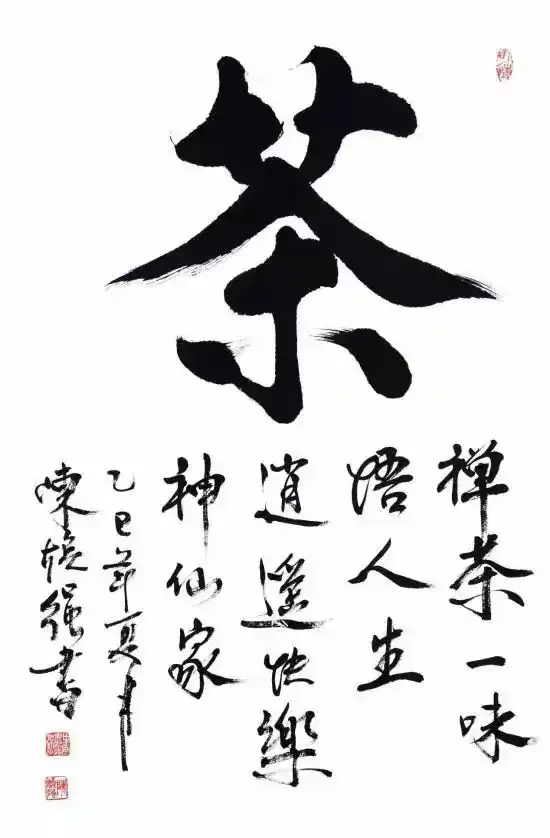 茶
禅茶一味
悟人生
逍遥快樂
神仙家
乙巳年夏月
陳强書